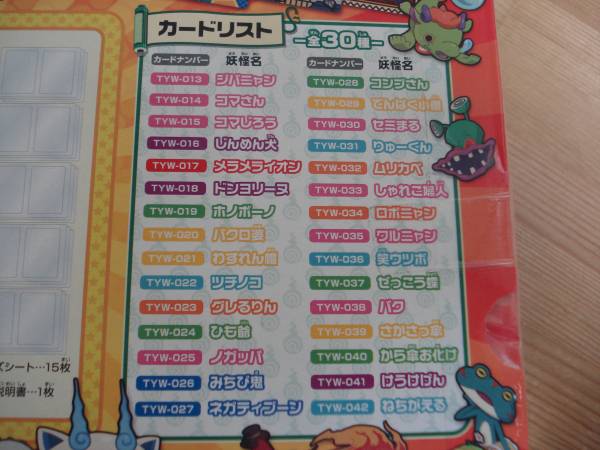 カードリスト
全30種
カードナンバー 妖怪名
TYW-013 ジバニャン
TYW-014 コマさん
TYW-015 コマじろう
TYW-016 じんめん犬
TYW-017 メラメライオン
TYW-018 ドンヨリーヌ
TYW-019 ホノボーノ
TYW-020 バクロ婆
TYW-021 わすれん帽
TYW-022 ツチノコ
TYW-023 グレるりん
TYW-024 ひも爺
TYW-025 ノガッパ
TYW-026 みちび鬼
TYW-027 ネガティブーン
カードナンバー 妖怪名
TYW-028 コンブさん
TYW-029 でんぱく小僧
TYW-030 セミまる
TYW-031 りゅーくん
TYW-032 ムリカベ
TYW-033 しゃれこ婦人
TYW-034 ロボニャン
TYW-035 ワルニャン
TYW-036 笑ウツボ
TYW-037 ぜっこう蝶
TYW-038 バク
TYW-039 さかさっ傘
TYW-040 から傘お化け
TYW-041 けうけげん
TYW-042 ねちがえる
ズシート…15枚
説明書…1枚